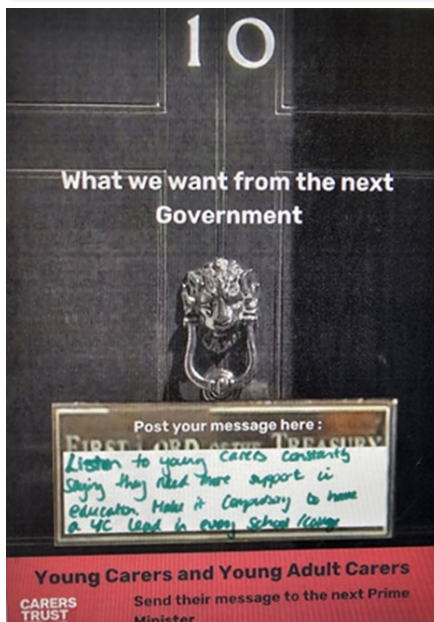 10
What we want from the next
Government
Post your message here :
FIRST LORD OF THE TREASURY
Listen to young carers constantly
saying they need more support in
education. Make it compulsory to have
a YC lead in every school/college
Young Carers and Young Adult Carers
CARERS
TRUST
Send their message to the next Prime
Minister